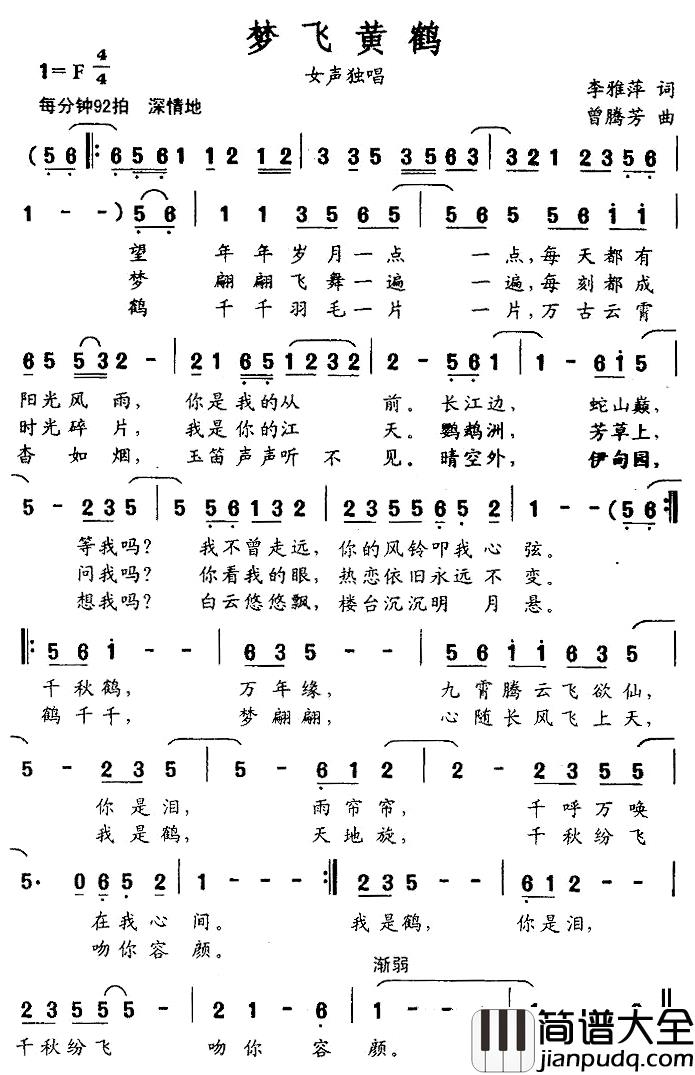 梦飞黄鹤
1=F 4/4
女声独唱
李雅萍 词
每分钟92拍 深情地
曾腾芳 曲
(5 6 ‖: 6 5 6 1 1 2 1 2 | 3 3 5 3 5 6 3 | 3 2 1 2 3 5 6
1 - - ) 5 6 | 1 1 3 5 6 5 | 5 6 5 5 6 i i
望 年年岁月一点 一点,每天都有
梦 翩翩飞舞一遍 一遍,每刻都成
鹤 千千羽毛一片 一片,万古云霄
6 5 5 3 2 - | 2 1 6 5 1 2 3 2 | 2 - 5 6 1 | 1 - 6 i 5
阳光风雨, 你是我的从 前。长江边, 蛇山巅,
时光碎片, 我是你的江 天。鹦鹉洲, 芳草上,
杳如烟, 玉笛声声听不见。晴空外, 伊甸园,
5 - 2 3 5 | 5 5 6 1 3 2 | 2 3 5 5 6 5 2 | 1 - - (5 6 :‖
等我吗? 我不曾走远, 你的风铃叩我心弦。
问我吗? 你看我的眼, 热恋依旧永远不变。
想我吗? 白云悠悠飘, 楼台沉沉明月悬。
‖: 5 6 i - - | 6 3 5 - - | 5 6 i i 6 3 5
千秋鹤, 万年缘, 九霄腾云飞欲仙,
鹤千千, 梦翩翩, 心随长风飞上天,
5 - 2 3 5 | 5 - - 6 1 2 | 2 - 2 3 5 5
你是泪, 雨帘帘, 千呼万唤
我是鹤, 天地旋, 千秋纷飞
5· 0 6 5 2 | 1 - - - :‖ 2 3 5 - - | 6 1 2 - -
在我心间。 我是鹤, 你是泪,
吻你容颜。
渐弱
2 3 5 5 | 5 - - - | 2 1 - 6 | 1 - - - | 1 - - 0 ‖
千秋纷飞 吻你容颜。
简谱大全
jianpudq.com